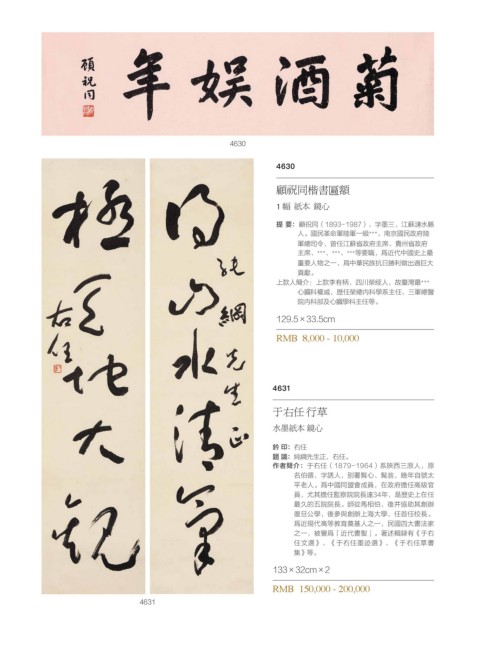 菊酒娱年
顾祝同
4630
得山水清氣
純綱先生正
極天地大觀
右任
4631
4630
顧祝同楷書匾額
1 幅 紙本 鏡心
提 要: 顧祝同（1893-1987），字墨三，江蘇漣水縣
人。國民革命軍陸軍一級***，南京國民政府陸
軍總司令，後任江蘇省政府主席，貴州省政府
主席，***，***，***等要職，爲近代中國史上最
重要人物之一，爲中華民族抗日勝利做出過巨大
貢獻。
上款人簡介: 上款李有柄，四川榮經人，故臺灣最***
心臟科權威，歷任榮總內科學系主任，三軍總醫
院內科部及心臟學科主任等。
129.5×33.5cm
RMB 8,000 - 10,000
4631
于右任 行草
水墨紙本 鏡心
鈐 印: 右任
題 識: 純綱先生正，右任。
作者簡介: 于右任（1879-1964）系陝西三原人，原
名伯循，字誘人，別署髯心、髯翁，晚年自號太
平老人。爲中國同盟會成員，在政府擔任高級官
員，尤其擔任監察院院長達34年，是歷史上在任
最久的五院院長。師從馬相伯，後并協助其創辦
復旦公學，後參與創辦上海大學，任首任校長。
爲近現代高等教育奠基人之一，民國四大書法家
之一，被譽爲「近代書聖」。著述輯錄有《于右
任文選》、《于右任墨迹選》、《于右任草書
集》等。
133×32cm×2
RMB 150,000 - 200,000